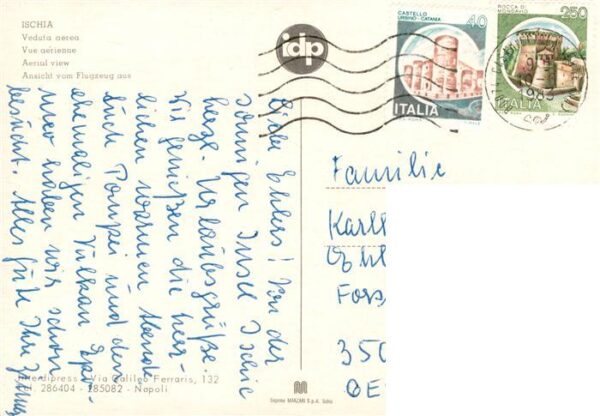 ISCHIA
Veduta aerea
Vue aérienne
Aerial view
Ansicht vom Flugzeug aus
idp
CASTELLO
URSINO - CATANIA
40
ITALIA
ROCCA DI
MONDAVIO
250
ITALIA
1983
Liebe Ehlers! Von der
sonnigen Insel Ischia
herzl. Urlaubsgrüße.
Wir genießen die herr-
lichen warmen Abende
Auch Pompei und den
ehemaligen Vulkan Epo-
meo haben wir schon
bestaunt. Alles Gute Ihre
Familie
Karlh
Ehl
Fors
350
Interdipress - Via Galileo Ferraris, 132
Tel. 286404 - 285082 - Napoli
M
Esprone MARZARI S.p.A. Schio